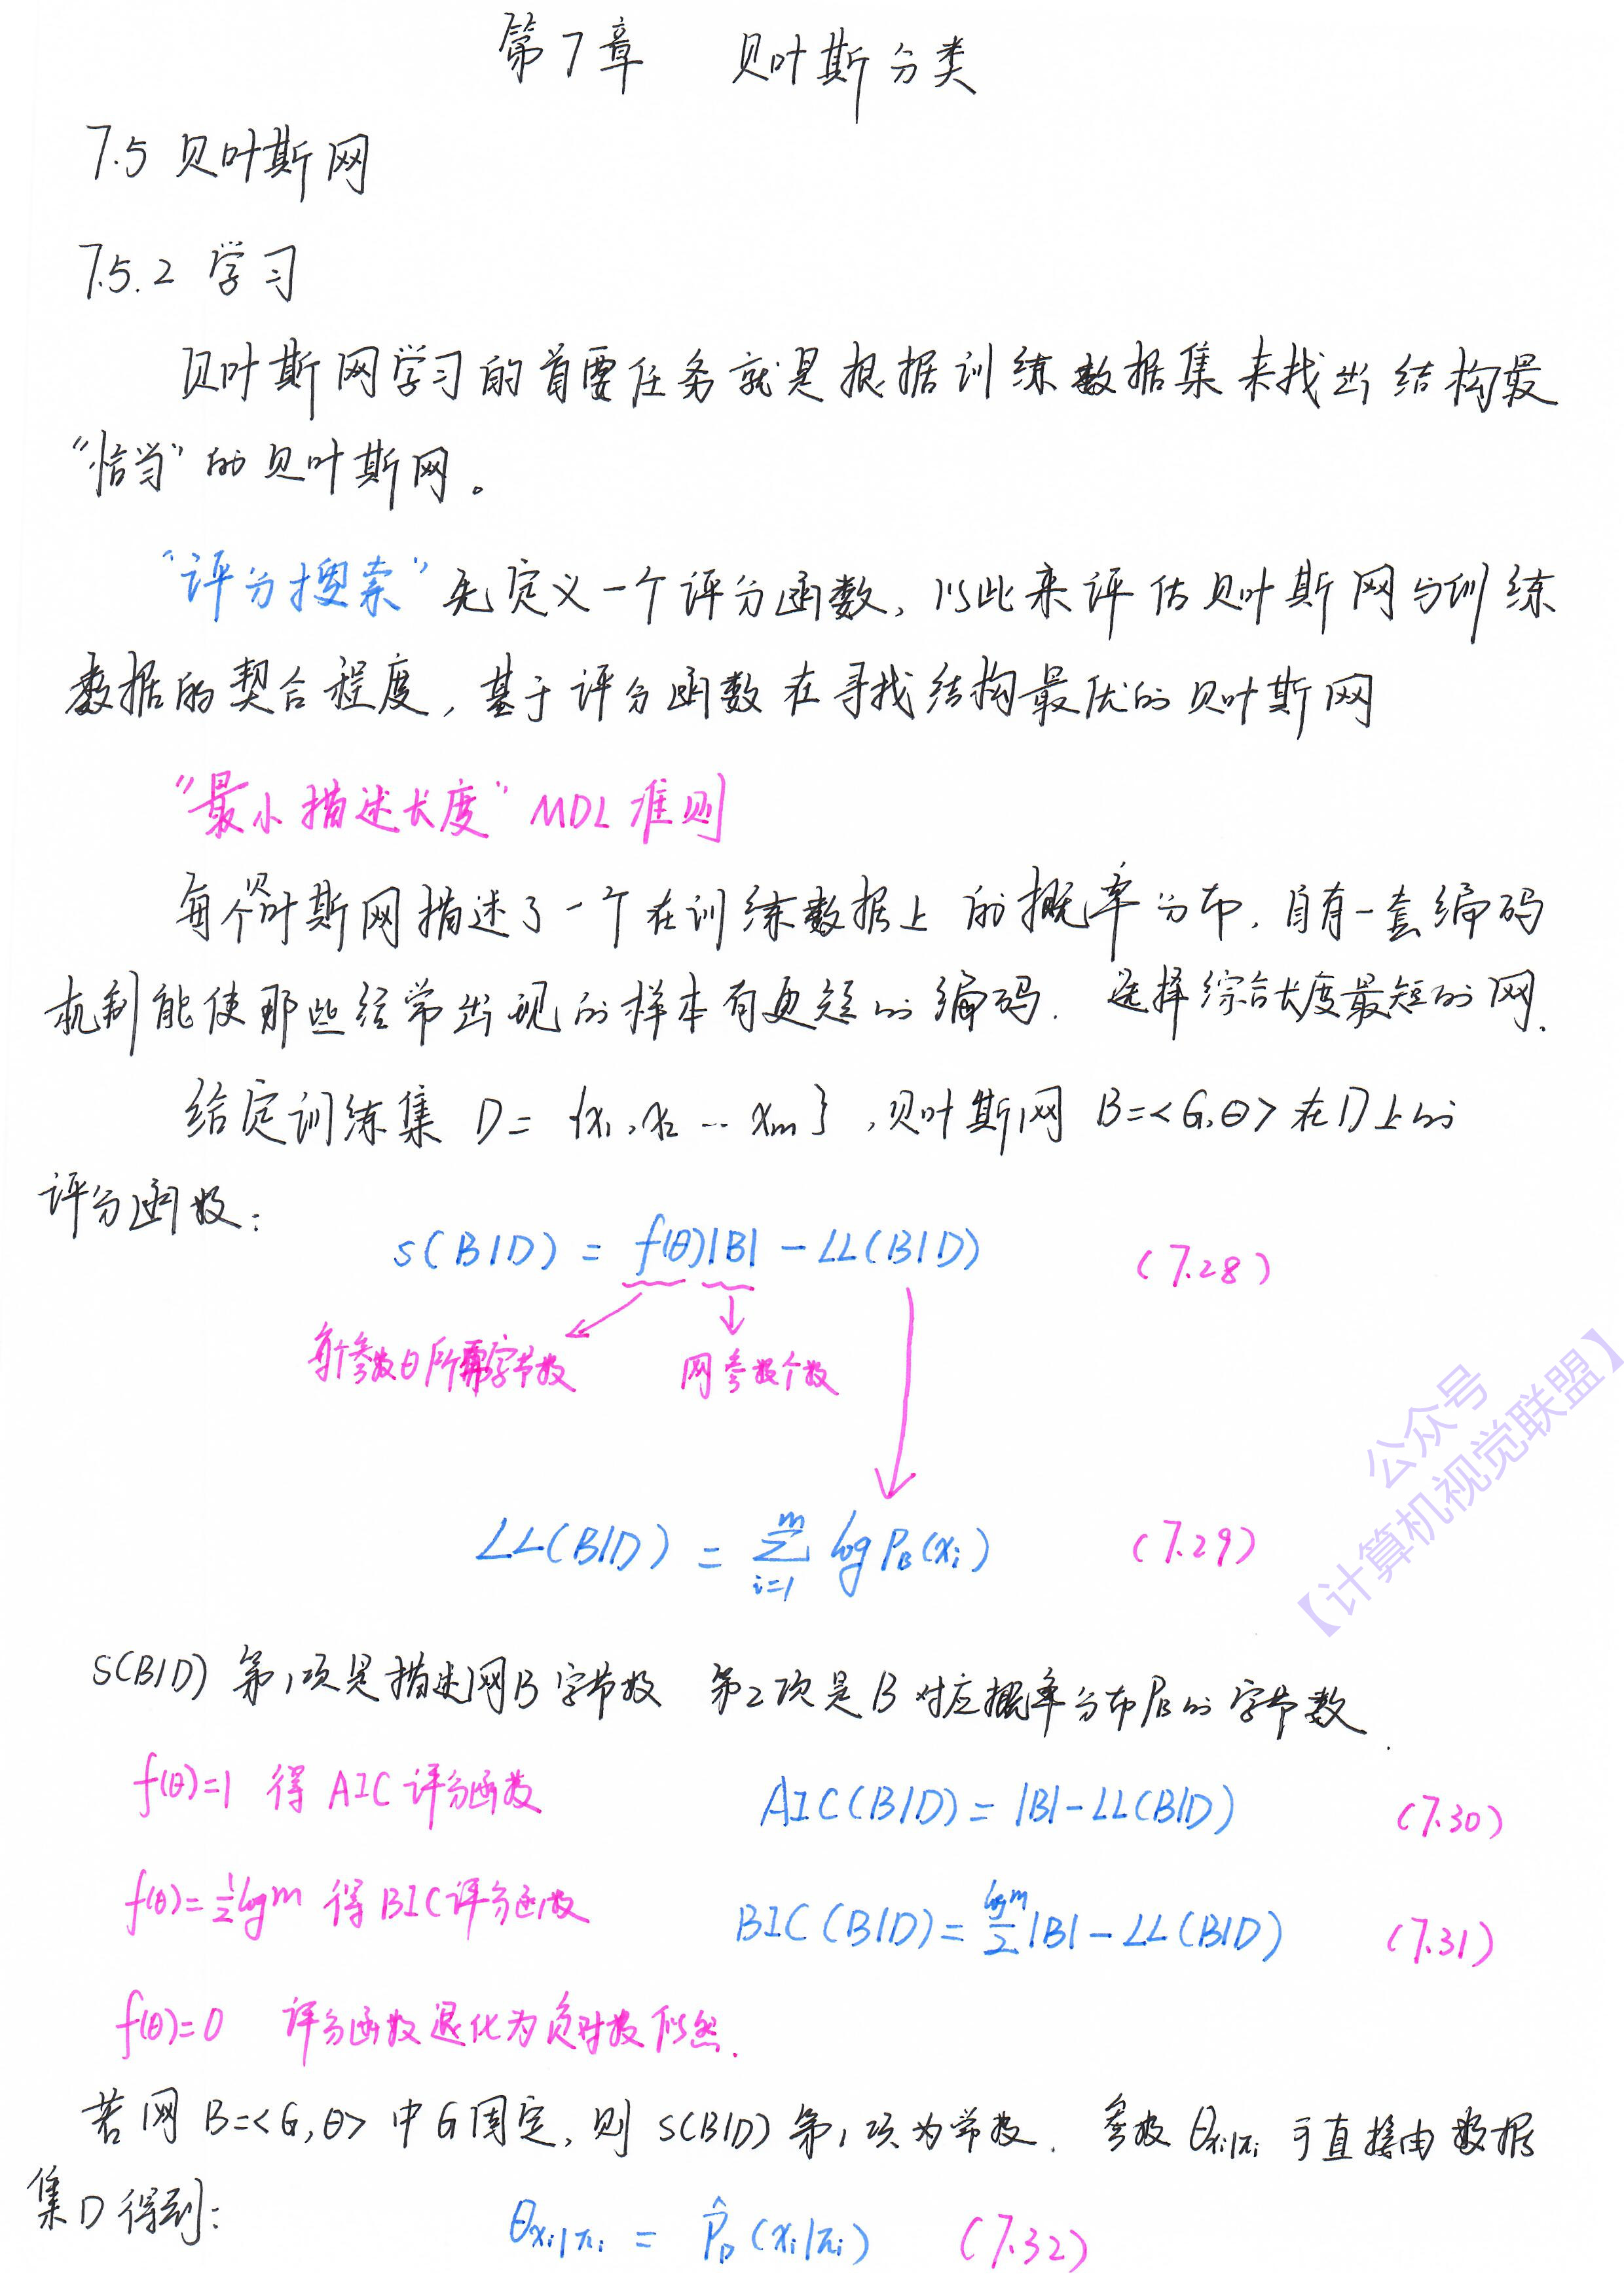 第7章 贝叶斯分类
7.5 贝叶斯网
7.5.2 学习
贝叶斯网学习的首要任务就是根据训练数据集来找出结构最
“恰当”的贝叶斯网。
“评分搜索”先定义一个评分函数,以此来评估贝叶斯网与训练
数据的契合程度,基于评分函数在寻找结构最优的贝叶斯网
“最小描述长度” MDL 准则
每个贝叶斯网描述了一个在训练数据上的概率分布,自有一套编码
机制能使那些经常出现的样本有更短的编码. 选择综合长度最短的网.
给定训练集 D = {x₁,x₂ … xₘ} ,贝叶斯网 B=<G,θ> 在D上的
评分函数:
s(B|D) = f(θ)|B| - LL(B|D) (7.28)
每个参数θ所需字节数 网参数个数
LL(B|D) = ∑_{i=1}^{m} log P_B(x_i) (7.29)
S(B|D) 第1项是描述网B字节数 第2项是B对应概率分布P_B的字节数.
f(θ)=1 得 AIC 评分函数 AIC(B|D) = |B| - LL(B|D) (7.30)
f(θ)=½logm 得BIC评分函数 BIC(B|D) = \frac{logm}{2}|B| - LL(B|D) (7.31)
f(θ)=0 评分函数退化为负对数似然.
若网 B=<G,θ> 中G固定,则 S(B|D) 第1项为常数. 参数 θ_{x_i|π_i} 可直接由数据
集D得到:
θ_{x_i|π_i} = \hat{P}_D(x_i|π_i) (7.32)
公众号
【计算机视觉联盟】